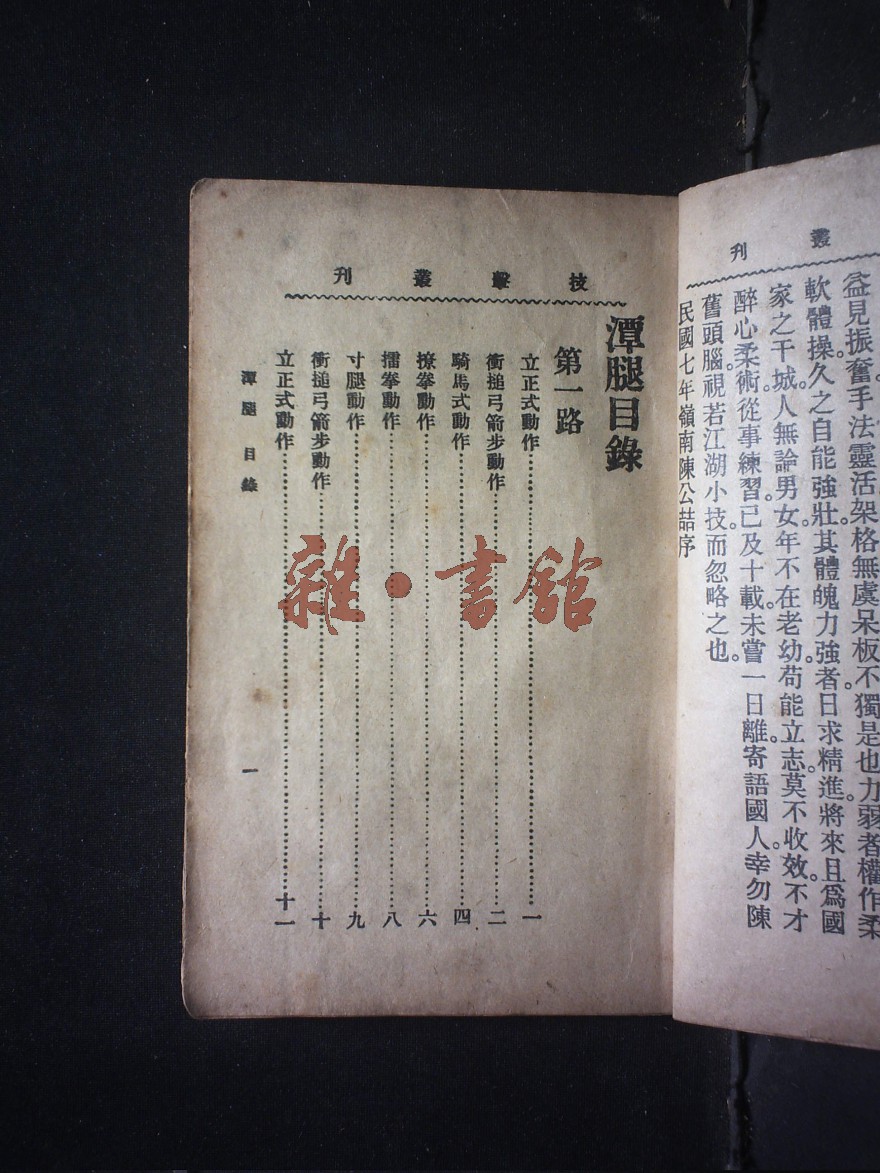 叢刊
益見振奮手法靈活架格無虞呆板不獨是也力弱者權作柔
軟體操久之自能強壯其體魄力強者日求精進將來且爲國
家之干城人無論男女年不在老幼苟能立志莫不收效不才
醉心柔術從事練習已及十載未嘗一日離寄語國人幸勿陳
舊頭腦視若江湖小技而忽略之也
民國七年嶺南陳公喆序
技擊叢刊
潭腿目錄
第一路
立正式動作……一
衝搥弓箭步動作……二
騎馬式動作……四
撩拳動作……六
擂拳動作……八
寸腿動作……九
衝搥弓箭步動作……十
立正式動作……十一
潭腿目錄 一
雜·書館